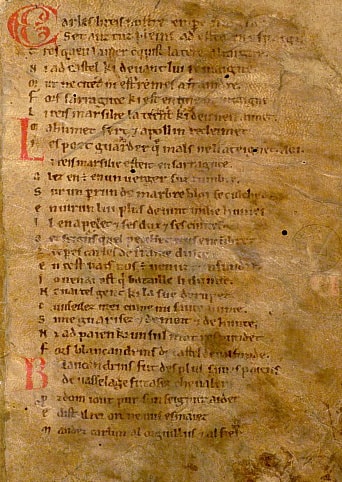 Carles li reis nostre emper
Set anz tuz pleins ad estet en espaigne
Tresqu en la mer cunquist la tere altaigne
N i ad castel ki devant lui remaigne
Mur ne citet n i est remes a fraindre
Fors sarraguce ki est en une muntaigne
Li reis marsilie la tient ki deu nen aimet
Mahumet sert e apollin recleimet
Nes poet guarder que mals ne l ateignet Aoi
Li reis marsilie esteit en sarraguce
Alez en est en un verger suz l umbre
Sur un perrun de marbre bloi se culchet
Envirun lui plus de vint milie humes
Il en apelet e ses dux e ses cuntes
Oez seignurs quel pecchet nus encumbret
Li emperes carles de france dulce
En cest pais nos est venuz cunfundre
Jo nen ai ost qui bataille li dunne
N ai tel gent ki la sue derumpet
Cunseilez mei cume mi saive hume
Si me guarisez e de mort e de hunte
N i ad paien ki un sul mot respundet
Fors blancandrins de castel de valfunde
Blancandrins fut des plus saives paiens
De vasselage fut asez chevaler
Prozdom i out pur sun seignur aider
E dist al rei ore ne vus esmaiez
Mandez carlun al orguillus e al fier